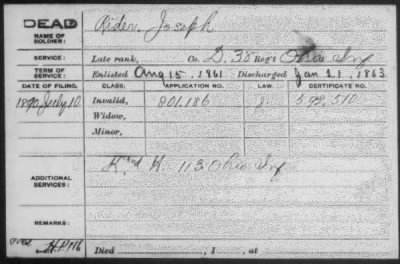 DEAD
NAME OF SOLDIER: Rider, Joseph
SERVICE: Late rank, Co. D, 38 Reg't Ohio Inf
TERM OF SERVICE: Enlisted Aug 15, 1861 Discharged Jan 21, 1863
DATE OF FILING. CLASS. APPLICATION NO. LAW. CERTIFICATE NO.
1890, July 10 Invalid, 801,186 592,510
Widow,
Minor,
ADDITIONAL SERVICES: H. 113 Ohio Inf
REMARKS:
Died , 1 , at